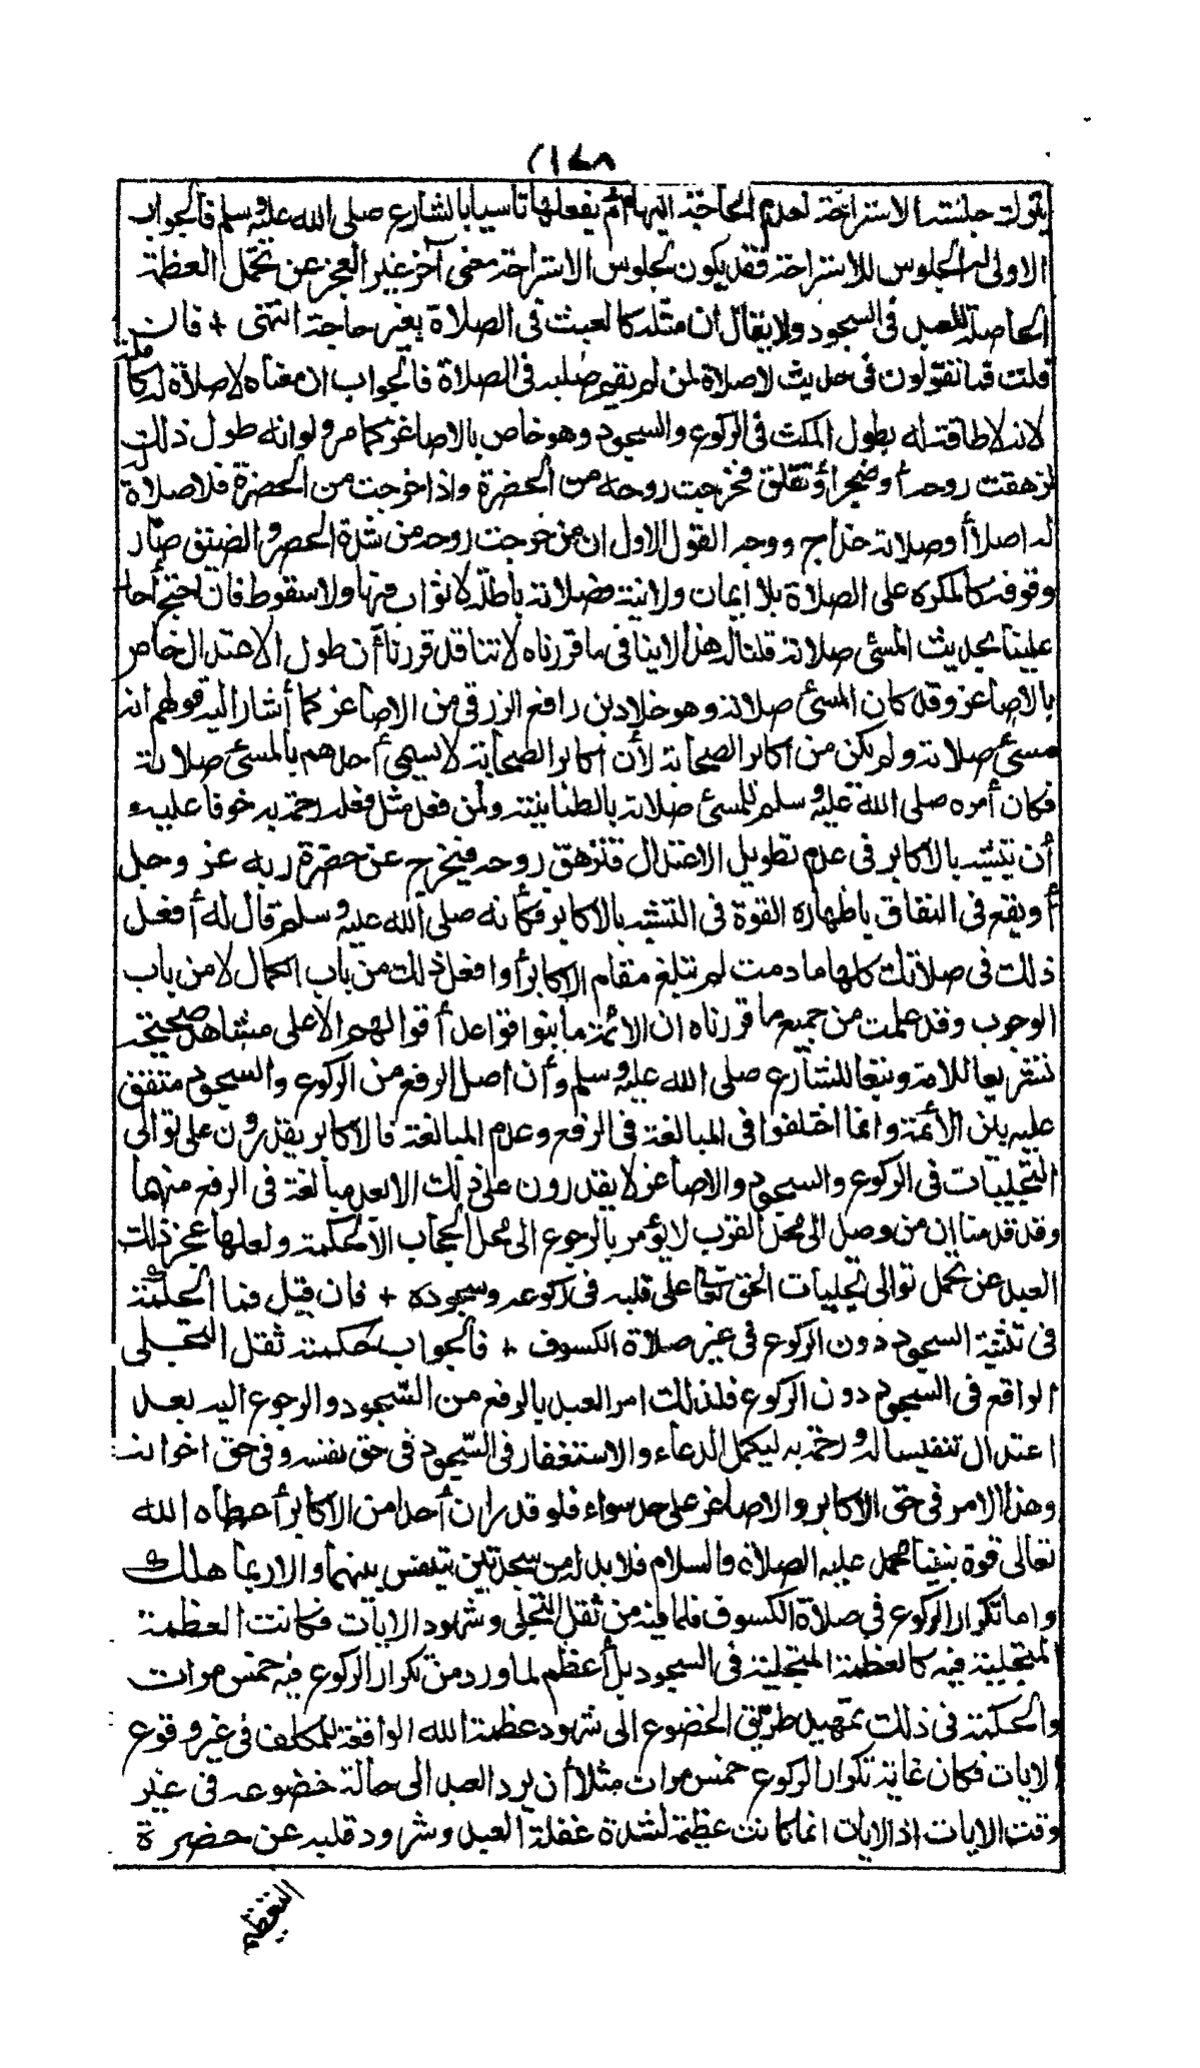 (١٤٨
يترك جلسة الاستراحة لعدم الحاجة اليها أم يفعلها تأسيا بالشارع صلى الله عليه وسلم فالجواب
الاولى له الجلوس للاستراحة فقد يكون لجلوس الاستراحة معنى آخر غير العجز عن تحمل العظمة
الحاصلة للعبد في السجود ولا يقال ان مثله كالعبث في الصلاة بغير حاجة انتهى + فان
قلت فما تقولون في حديث لا صلاة لمن لم يقم صلبه في الصلاة فالجواب ان معناه لا صلاة له كاملة
لانه لا طاقة له بطول المكث في الركوع والسجود وهو خاص بالاصاغر كما مر ولو انه طول ذلك
لزهقت روحه أو ضجر أو تقلق فخرجت روحه من الحضرة واذا خرجت من الحضرة فلا صلاة له
له اصلا أو صلاته خداج ووجه القول الاول ان من خرجت روحه من شدة الحصر والضيق صار
وقوفه كالمكره على الصلاة بلا ايمان ولا نية فصلاته باطلة لا ثواب فيها ولا سقوط فان احتج أحد
علينا بحديث المسئ صلاته قلنا له هذا لا ينافي ما قررناه لاننا قد قررنا أن طول الاعتدال خاص
بالاصاغر وقد كان المسئ صلاته وهو خلاد بن رافع الزرقي من الاصاغر كما أشار اليه قولهم انه
مسئ صلاته ولم يكن من اكابر الصحابة لأن اكابر الصحابة لا يسمى أحدهم بالمسئ صلاته
فكان أمره صلى الله عليه وسلم للمسئ صلاته بالطمأنينة ولمن فعل مثل فعله رحمة به خوفا عليه
أن يتشبه بالاكابر في عدم تطويل الاعتدال فتزهق روحه فيخرج عن حضرة ربه عز وجل
أو يقع في النفاق باظهاره القوة في التشبه بالاكابر فكأنه صلى الله عليه وسلم قال له أفعل
ذلك في صلاتك كلها ما دمت لم تبلغ مقام الاكابر أو افعل ذلك من باب الكمال لا من باب
الوجوب وقد علمت من جميع ما قررناه ان الائمة ما بنوا قواعد أقوالهم الا على مشاهد صحيحة
تشريعا للامة وتبعا للشارع صلى الله عليه وسلم وأن اصل الرفع من الركوع والسجود متفق
عليه بين الأئمة وانما اختلفوا في المبالغة في الرفع وعدم المبالغة فالاكابر يقدرون على توالى
التجليات في الركوع والسجود والاصاغر لا يقدرون على ذلك الا بعد مبالغة في الرفع منهما
وقد قدمنا ان من وصل الى محل القرب لا يؤمر بالرجوع الى محل الحجاب الا لحكمة ولعلها عجز ذلك
العبد عن تحمل توالى تجليات الحق تعالى على قلبه في ركوعه وسجوده + فان قيل فما الحكمة
في تثنية السجود دون الركوع في غير صلاة الكسوف + فالجواب حكمته ثقل التجلى
الواقع في السجود دون الركوع فلذلك امر العبد بالرفع من السجود والرجوع اليه بعد
اعتدال تنفيسا له ورحمة به ليكمل الدعاء والاستغفار في السجود في حق نفسه وفي حق اخوانه
وهذا الامر في حق الاكابر والاصاغر على حد سواء فلو قدر ان أحدا من الاكابر أعطاه الله
تعالى قوة نبينا محمد عليه الصلاة والسلام فلا بد له من سجدتين يتنفس بينهما والا ربما هلك
واما تكرار الركوع في صلاة الكسوف فلما فيه من ثقل التجلى وشهود الايات فكانت العظمة
المتجلية فيه كالعظمة المتجلية في السجود بل أعظم لما ورد من تكرار الركوع فيه خمس مرات
والحكمة في ذلك تمهيد طريق الخضوع الى شهود عظمة الله الواقعة للمكلف في غير وقوع
الايات فكان غاية تكرار الركوع خمس مرات مثلا أن يرد العبد الى حالة خضوعه في غير
وقت الايات اذ الايات انما كانت عظيمة لشدة غفلة العبد وشرود قلبه عن حضرة